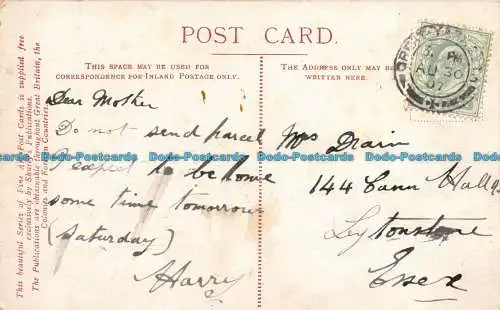 POST CARD.
THIS SPACE MAY BE USED FOR
CORRESPONDENCE FOR INLAND POSTAGE ONLY.
THE ADDRESS ONLY MAY BE
WRITTEN HERE.
This beautiful Series of Fine Art Post Cards is supplied free
exclusively by Shurey's Publications.
The Publications are obtainable throughout Great Britain, the
Colonies and Foreign Countries.
Dear Mother
Do not send parcel
I expect to be home
some time tomorrow
(Saturday)
Harry
Mrs Drain
144 Cann Hall
Leytonstone
Essex
AU 30
07
Dodo-Postcards.com
Dodo-Postcards.com
Dodo-Postcards.com
Dodo-Postcards.com